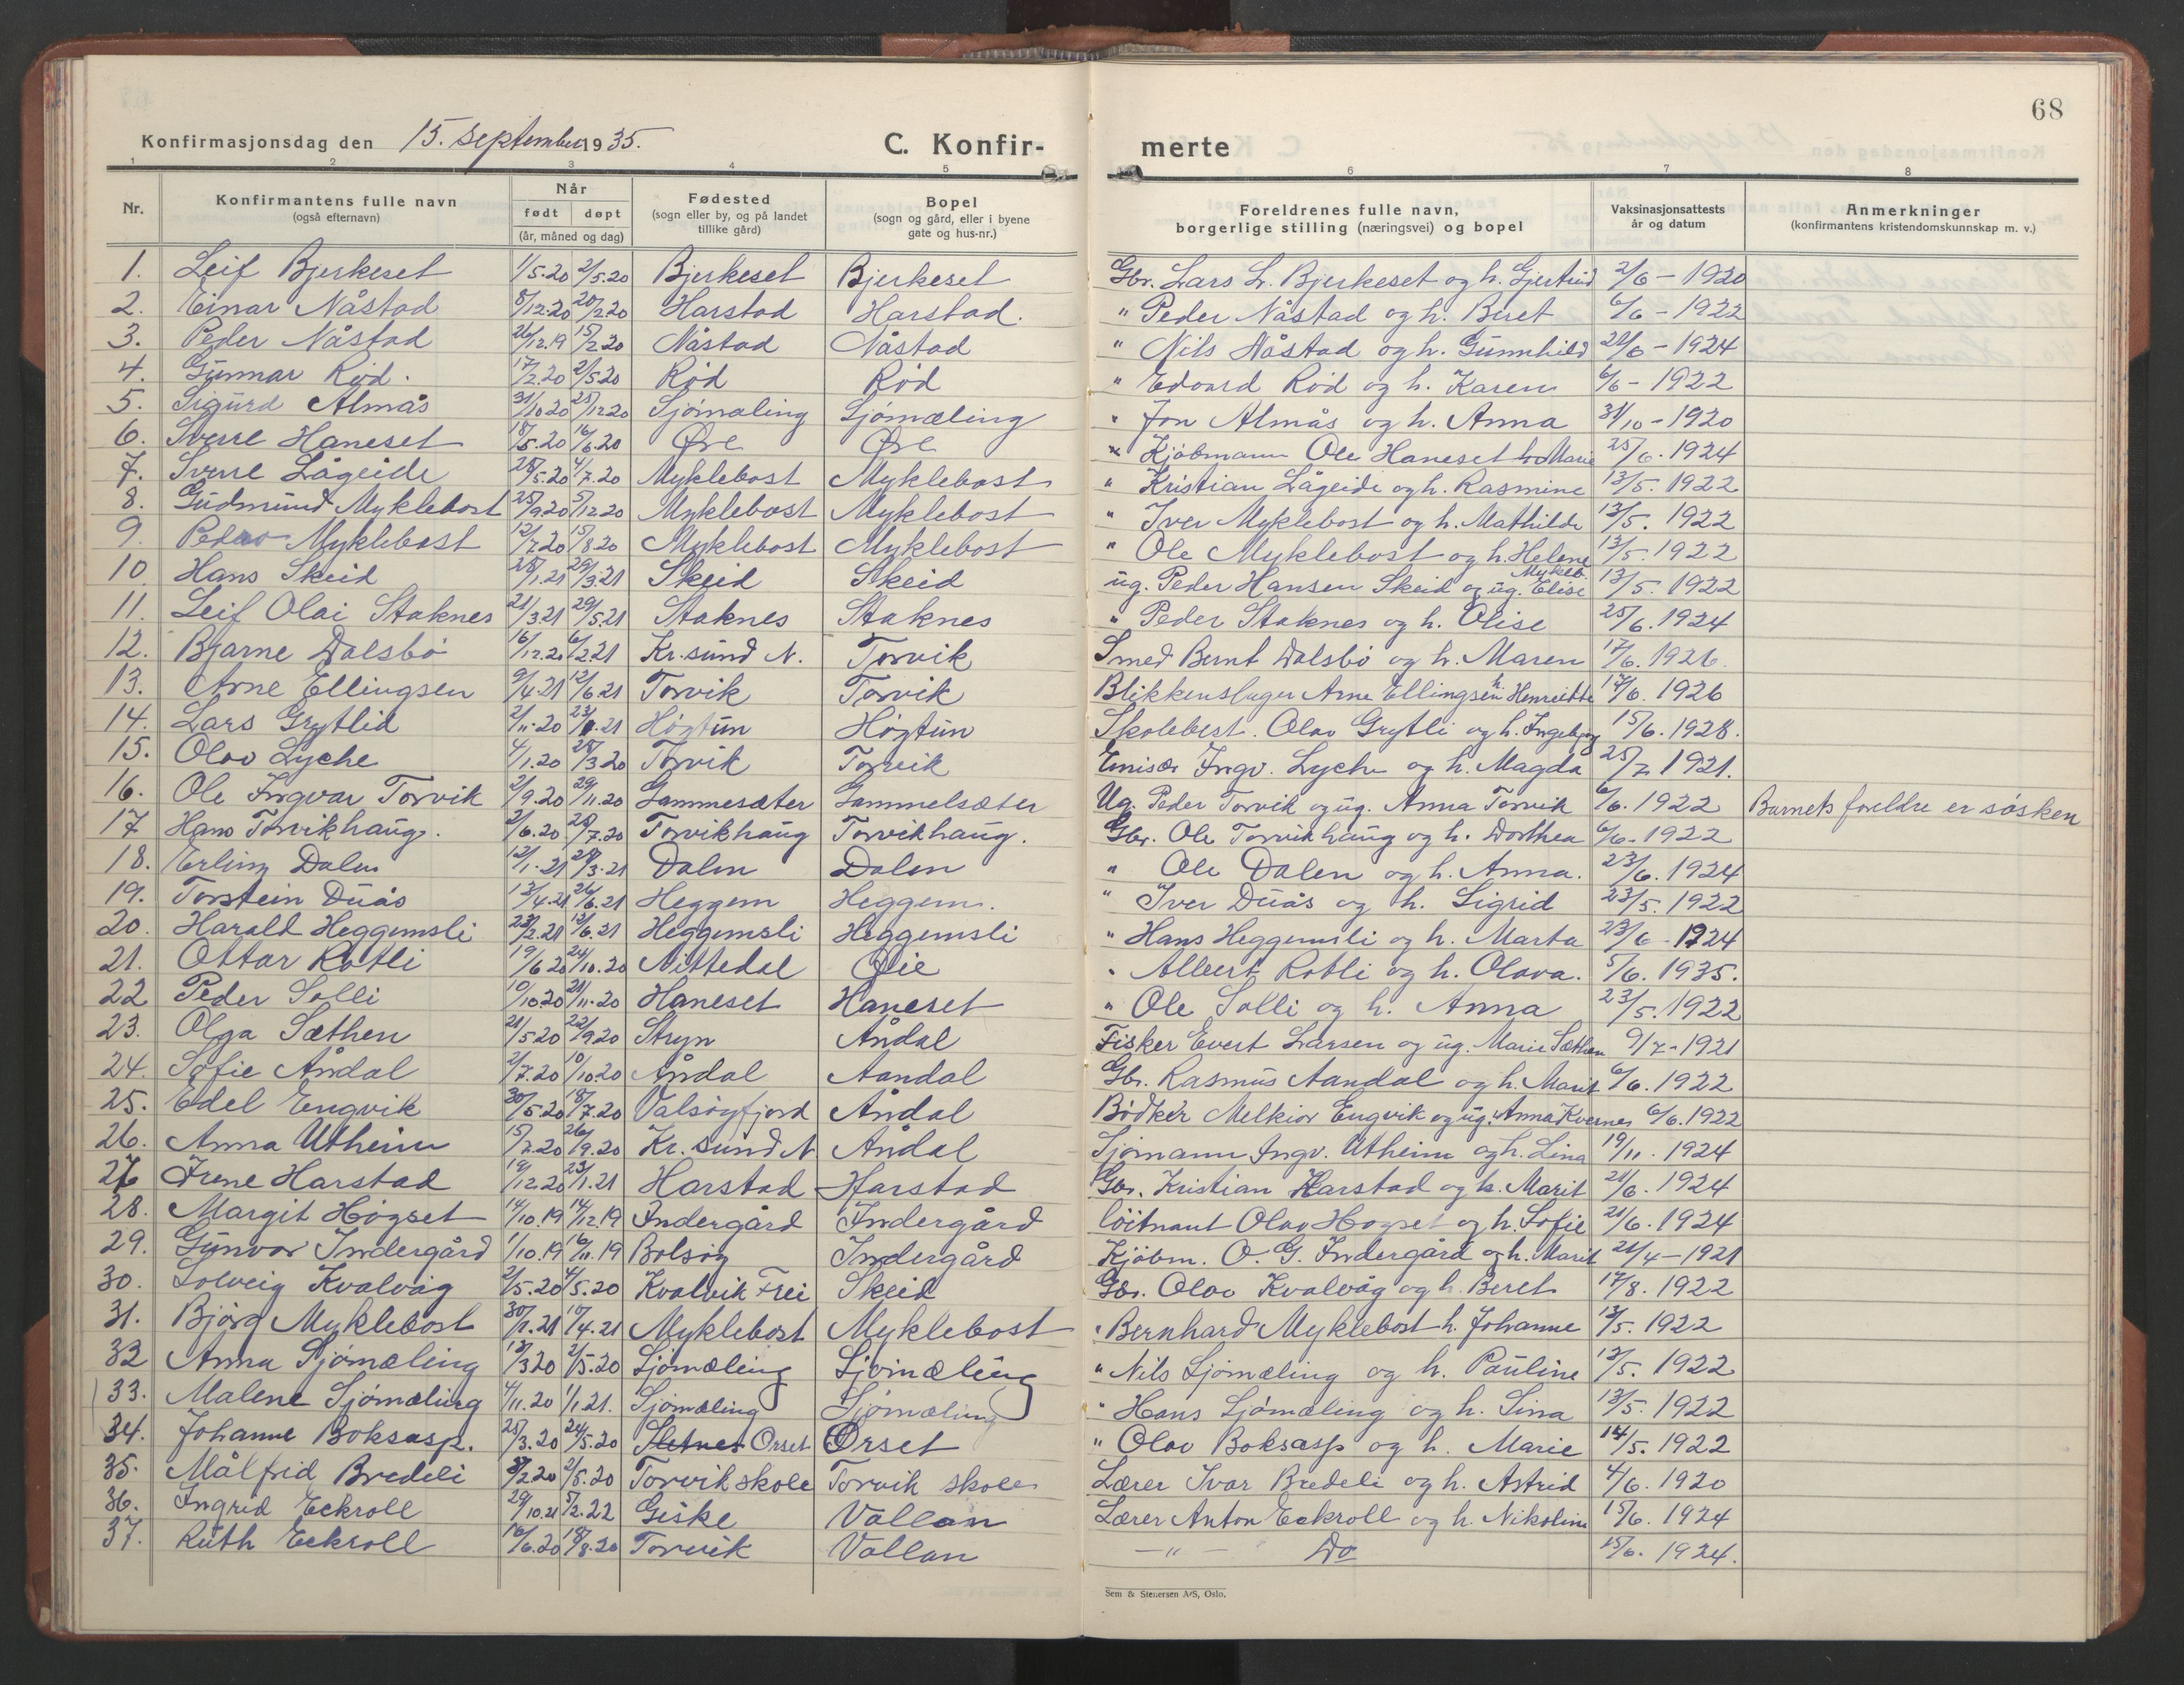 68
Konfirmasjonsdag den 15. september 1935.
C. Konfir-
merte
1 2 3 4 5 6 7 8
Nr. Konfirmantens fulle navn (også efternavn) Når født døpt (år, måned og dag) Fødested (sogn eller by, og på landet tillike gård) Bopel (sogn og gård, eller i byene gate og hus-nr.) Foreldrenes fulle navn, borgerlige stilling (næringsvei) og bopel Vaksinasjonsattests år og datum Anmerkninger (konfirmantens kristendomskunnskap m. v.)
1. Leif Bjerkeset 1/5.20 2/5.20 Bjerkeset Bjerkeset Gbr. Lars L. Bjerkeset og h. Gjertrud 2/6 - 1920
2. Einar Nåstad 8/12.20 20/2.20 Harstad Harstad. " Peder Nåstad og h. Beret 6/6 - 1922
3. Peder Nåstad 26/12.19 15/2.20 Nåstad Nåstad " Nils Nåstad og h. Gunnhild 21/6 - 1924
4. Gunnar Rød. 17/2.20 2/5.20 Rød Rød " Edvard Rød og h. Karen 6/6 - 1922
5. Sigurd Almås 31/10.20 25/12.20 Sjømæling Sjømæling " Jon Almås og h. Anna 31/10 - 1920
6. Sverre Haneset 18/5.20 16/6.20 Øre Øre Kjøbmann Ole Haneset h. Marie 25/6. 1924
7. Sverre Lågeide 28/5.20 4/7.20 Myklebost Myklebost " Kristian Lågeide og h. Rasmine 13/5. 1922
8. Gudmund Myklebost 25/9.20 5/12.20 Myklebost Myklebost " Iver Myklebost og h. Mathilde 13/5. 1922
9. Peder Myklebost 12/7.20 15/8.20 Myklebost Myklebost " Ole Myklebost og h. Helene 13/5. 1922
10. Hans Skeid 28/1.21 29/3.21 Skeid Skeid ug. Peder Hansen Skeid og ug. Elise Mykleb. 13/5. 1922
11. Leif Olai Staknes 21/3.21 29/5.21 Staknes Staknes " Peder Staknes og h. Olise 25/6. 1924
12. Bjarne Dalsbø 16/12.20 6/2.21 Kr.sund N. Torvik Smed Bernt Dalsbø og h. Maren 17/6. 1926.
13. Arne Ellingsen 9/4.21 12/6.21 Torvik Torvik Blikkenslager Arne Ellingsen h. Henriette 17/6. 1926
14. Lars Grytlid 2/11.20 Høgtun Høgtun Skolebest. Olav Grytli og h. Ingebjørg 15/6. 1928.
15. Olav Lyche 4/1.20 28/3.20 Torvik Torvik Emisær Ingv. Lyche og h. Magda 25/7 1921.
16. Ole Ingvar Torvik 2/9.20 29/11.20 Gammesæter Gammelsæter Ug. Peder Torvik og ug. Anna Torvik 6/6. 1922 Barnets foreldre er søsken
17 Hans Torvikhaug. 2/6.20 25/7.20 Torvikhaug Torvikhaug. Gbr. Ole Torvikhaug og h. Dorthea 6/6. 1922
18. Erling Dalen 12/1.21 28/3.21 Dalen Dalen " Ole Dalen og h. Anna. 23/6. 1924
19. Torstein Duås 13/4.21 26/6.21 Heggem Heggem. " Iver Duås og h. Sigrid 23/5. 1922
20. Harald Heggemsli 23/2.21 12/6.21 Heggemsli Heggemsli " Hans Heggemsli og h. Marta 23/6 - 1924
21. Ottar Rotli 19/6.20 24/10.20 Nittedal Øie " Albert Rotli og h. Olava. 5/6. 1935.
22 Peder Solli 10/10.20 21/11.20 Haneset Haneset " Ole Solli og h. Anna 23/5. 1922
23. Olga Sæthen 21/5.20 22/9.20 Stryn Åndal Fisker Evert Larsen og ug. Marie Sæthen 9/7 - 1921
24. Sofie Åndal 2/7.20 10/10.20 Åndal Aandal Gbr. Rasmus Aandal og h. Marit 6/6. 1922
25. Edel Engvik 30/5.20 18/7.20 Valsøyfjord Åndal Bødker Melkior Engvik og ug. Anna Kvernes 6/6. 1922
26. Anna Utheim 15/7.20 26/9.20 Kr.sund N Åndal Sjømann Ingv. Utheim og h. Lina 19/11. 1924
27 Irene Harstad 19/12.20 23/1.21 Harstad Harstad Gbr. Kristian Harstad og h. Marit 21/6. 1924
28. Margit Høgset 14/10.19 14/12.19 Indergård Indergård Løitnant Olav Høgset og h. Sofie 21/6. 1924
29. Gunvor Indergård 1/10.19 16/11.19 Bolsøy Indergård Kjøbm. O. G. Indergård og h. Marit 21/4 - 1921
30. Solveig Kvalvåg 2/5.20 4/5.20 Kvalvik Frei Skeid Gbr. Olav Kvalvåg og h. Beret 17/8. 1922
31. Bjørg Myklebost 30/1.21 10/4.21 Myklebost Myklebost " Bernhard Myklebost h. Johanne 13/5. 1922
32 Anna Sjømæling 13/3.20 2/5.20 Sjømæling Sjømæling " Nils Sjømæling og h. Pauline 13/5. 1922
33. Malene Sjømæling 4/11.20 1/1.21. Sjømæling Sjømæling " Hans Sjømæling og h. Sina 13/5. 1922
34. Johanne Boksasp. 25/3.20 24/5.20 Orset Orset " Olav Boksasp og h. Marie 14/5. 1922
35. Målfrid Bredeli 2/5.20 Torvik skole Torvik skole Lærer Ivar Bredeli og h. Astrid 4/6. 1920
36. Ingrid Eckroll 29/10.21 5/2.22 Giske Vollan Lærer Anton Eckroll og h. Nikoline 15/6. 1924
37. Ruth Eckroll 16/6.20 18/8.20 Torvik Vollan —"— Do 15/6. 1924.
Sem & Stenersen A/S, Oslo.